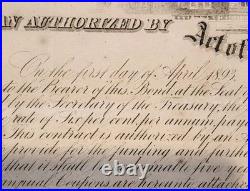 AN AUTHORIZED BY Act of
On the first day of April 1893,
to the Bearer of this Bond, at the Seat
by the Secretary of the Treasury, the
rate of Six per cent, per annum, paya
This contract is authorized by an
provide for the funding and further
that it shall be
five ye
Coupons are hereto atta